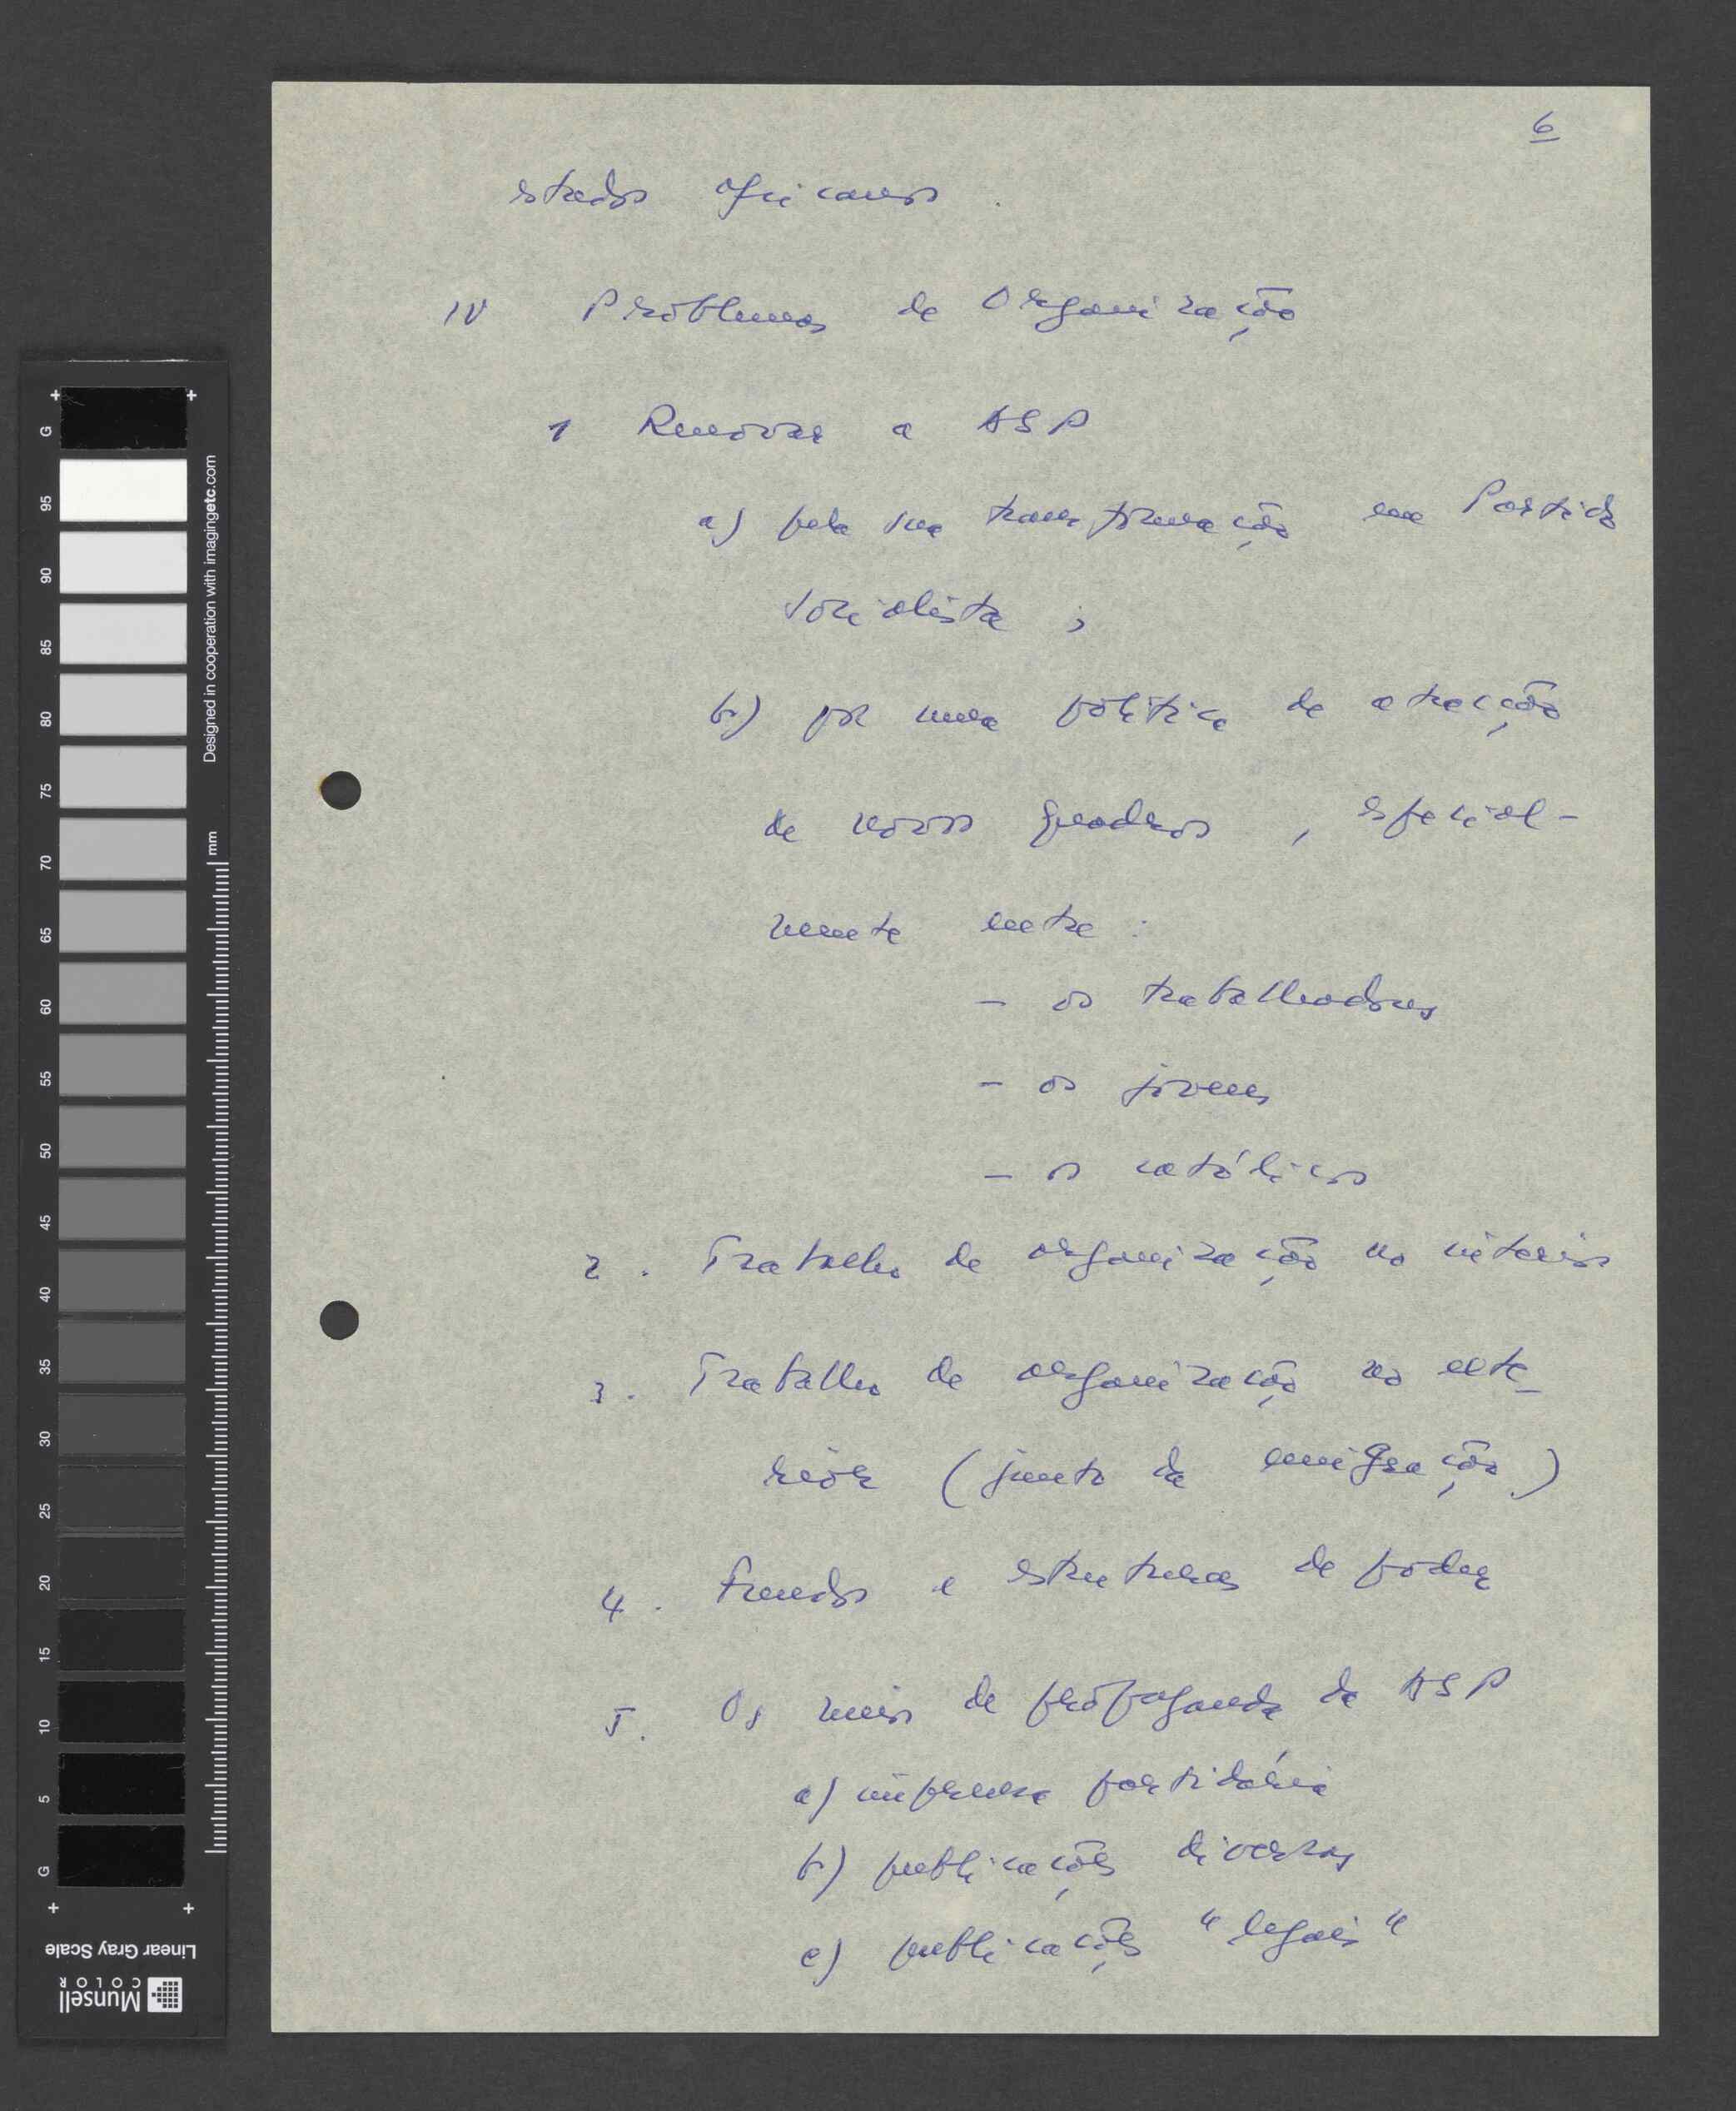 6
estados africanos.
IV Problemas de Organização
1 Renovar a ASP
a) pela sua transformação em Partido
Socialista;
b) por uma política de atracção
de novos quadros, especial-
mente entre:
- os trabalhadores
- os jovens
- os católicos
2. Trabalho de organização no interior
3. Trabalho de organização no exte-
rior (junto da emigração)
4. Fundos e estruturas de poder
5. Os meios de propaganda da ASP
a) imprensa partidária
b) publicações diversas
c) publicações "legais"
Designed in cooperation with imagingetc.com
mm
G
95
90
85
80
75
70
65
60
55
50
45
40
35
30
25
20
15
10
5
G
Linear Gray Scale
Munsell
COLOR